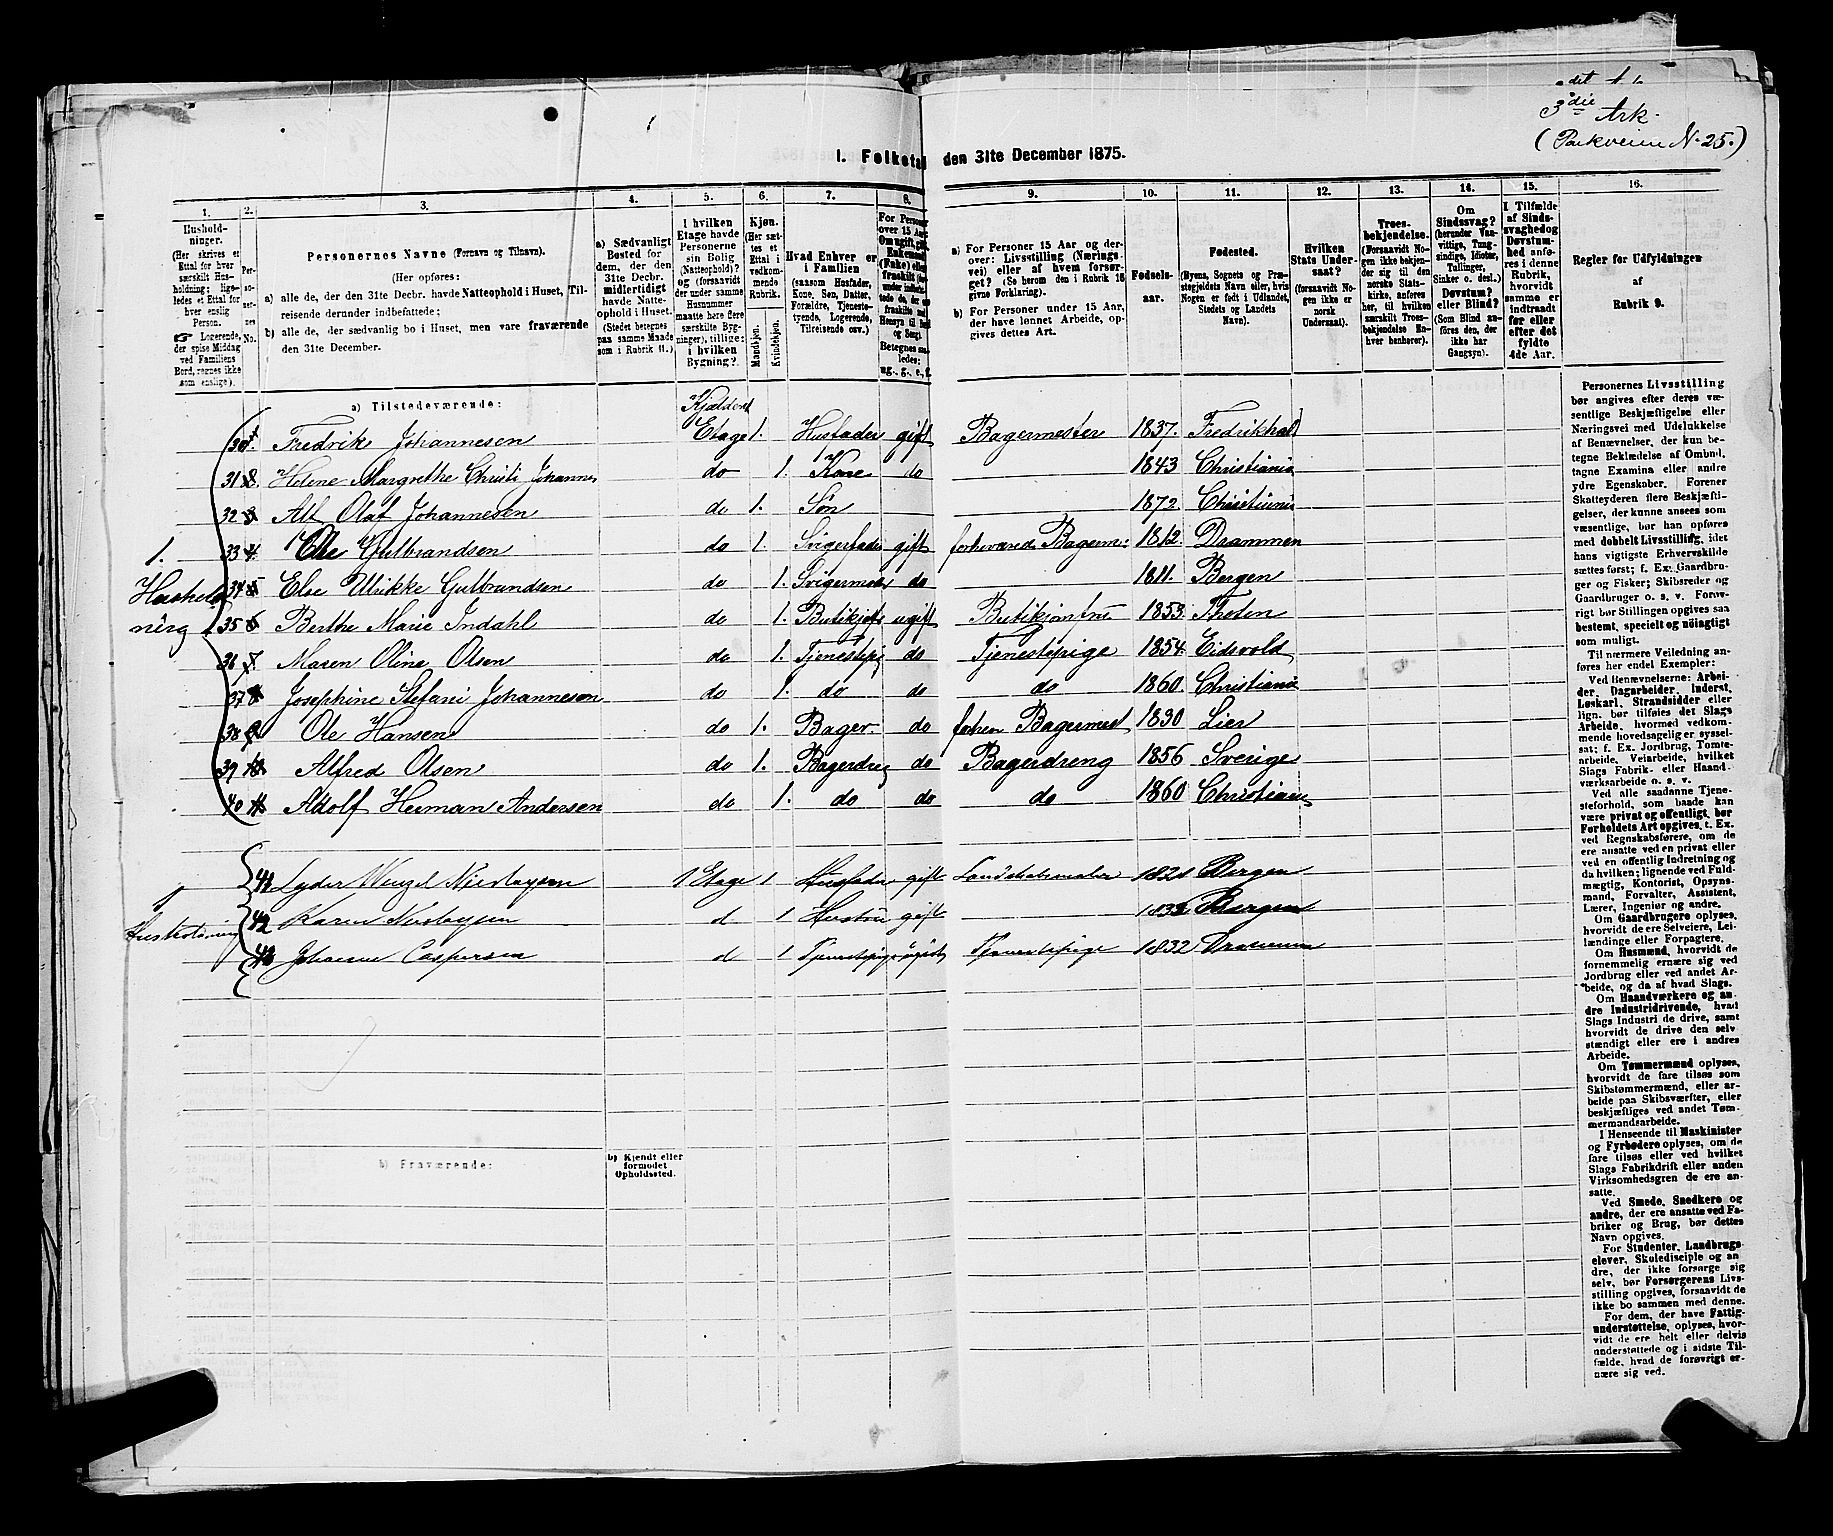 3die Ark.
(Parkveien N. 25.)
I. Folketal den 31te December 1875.
1. 2. 3. 4. 5. 6. 7. 8. 9. 10. 11. 12. 13. 14. 15. 16.
Husholdninger.
(Her skrives et Ettal for hver særskilt Husholdning; ligeledes et Ettal for hver enslig Person.
Logerende, der spise Middag ved Familiens Bord, regnes ikke som enslige).
Personernes No.
Personernes Navne (Fornavn og Tilnavn).
(Her opføres:
a) alle de, der den 31te Decbr. havde Natteophold i Huset, Tilreisende derunder indbefattede;
b) alle de, der sædvanlig bo i Huset, men vare fraværende den 31te December.
a) Sædvanligt Bosted for dem, der den 31te Decbr. midlertidigt havde Natteophold i Huset.
(Stedet betegnes paa samme Maade som i Rubrik 11.)
I hvilken Etage havde Personerne sin Bolig (Natteophold)? og (forsaavidt der under samme Husnummer maatte høre flere særskilte Bygninger), tillige: i hvilken Bygning?
Kjøn.
(Her sættes et Ettal i vedkommende Rubrik.
Mandkjøn. Kvindekjøn.
Hvad Enhver er i Familien
(saasom Husfader, Kone, Søn, Datter, Forældre, Tjenestetyende, Logerende, Tilreisende osv.)
a) For Personer 15 Aar og derover: Livsstilling (Næringsvei) eller af hvem forsørget? (Se herom den i Rubrik 16 givne Forklaring).
b) For Personer under 15 Aar, der have lønnet Arbeide, opgives dettes Art.
Fødselsaar.
Fødested.
(Byens, Sognets og Præstegjeldets Navn eller, hvis Nogen er født i Udlandet, Stedets og Landets Navn).
Hvilken Stats Undersaat?
(forsaavidt Nogen ikke er norsk Undersaat).
Troesbekjendelse.
(Forsaavidt Nogen ikke bekjender sig til den norske Statskirke, anføres her, til hvilket særskilt Troesbekjendelse Enhver henhører).
Om Sindssvag? (herunder Vanvittige, Tungsindige, Idioter, Tullinger, Sinker o. desl.)
Døvstum? eller Blind?
(Som Blind anføres den, der ikke har Gangsyn).
I Tilfælde af Sindssvaghed og Døvstumhed anføres i denne Rubrik, hvorvidt samme er indtraadt før eller efter det fyldte 4de Aar.
Regler for Udfyldningen af Rubrik 9.
a) Tilstedeværende:
Kjælder
30 1. Fredrik Johannesen Etage 1. Husfader gift Bagermester 1837. Fredrikhald
31 2. Helene Margrethe Christi Johannes do 1. Kone do 1843 Christiania
32 3 Alf Olaf Johannesen do 1. Søn 1872. Christiania
1. 33 4. Ole Gulbrandsen do 1. Svigerfader gift forhenværend Bagerm: 1812. Drammen
Hushold 34 5 Else Ulrikke Gulbrandsen do 1. Svigermoder do 1811. Bergen
ning 35 6 Berthe Marie Indahl do 1. ugift 1853. Thoten
36 7. Maren Oline Olsen do 1. Tjenestepig do Tjenestepige 1854. Eidsvold
37 8 Josephine Stefani Johannesen do 1. do do do 1860. Christiania
38 9 Ole Hansen do 1. Bager. do Bagermest 1830 Lier
39 10 Alfred Olsen do 1. Bagerdreng do Bagerdreng 1856 Sverige
40 11 Adolf Herman Andersen do 1. do do do 1860 Christiania
41 Lyder Wenzel Nicolaysen 1 Etage 1 Husfader gift Landskabsmaler 1821 Bergen
Husholdning 42 Karen Nicolaysen d 1 Hustru gift Bergen
43 Johanne Caspersen d 1 Tjenestepige ugift Tjenestepige 1832 Drammen
b) Fraværende:
b) Kjendt eller formodet Opholdssted.
Personernes Livsstilling bør angives efter deres væsentlige Beskjæftigelse eller Næringsvei med Udelukkelse af Benævnelser, der kun betegne Beklædelse af Ombud, tagne Examina eller andre ydre Egenskaber. Forener Skatteyderen flere Beskjæftigelser, der kunne ansees som væsentlige, bør han opføres med dobbelt Livsstilling, idet hans vigtigste Erhvervskilde sættes først; f. Ex. Gaardbruger og Fisker; Skibsreder og Gaardbruger o. s. v. Forøvrigt bør Stillingen opgives saa bestemt, specielt og nöiagtigt som muligt.
Til nærmere Veiledning anføres her endel Exempler:
Ved Benævnelserne: Arbeider, Dagarbeider, Inderst, Løskarl, Strandsidder eller lign. bør tilføies det Slags Arbeide, hvormed vedkommende hovedsagelig er sysselsat; f. Ex. Jordbrug, Tomtearbeide, Veiarbeide, hvilket Slags Fabrik- eller Haandværksarbeide o. s. v.
Ved alle saadanne Tjenesteforhold, som baade kan være privat og offentligt, bør Forholdets Art opgives, t. Ex. ved Regnskabsførere, om de ere ansatte ved en privat eller ved en offentlig Indretning og da hvilken; lignende ved Fuldmægtig, Kontorist, Opsynsmand, Forvalter, Assistent, Lærer, Ingeniør og andre.
Om Gaardbrugere oplyses, hvorvidt de ere Selveiere, Leilændinge eller Forpagtere.
Om Husmænd, hvorvidt de fornemmelig ernære sig ved Jordbrug eller ved andet Arbeide, og da af hvad Slags.
Om Haandværkere og andre Industridrivende, hvad Slags Industri de drive, samt hvorvidt de drive den selvstændigt eller ere i andres Arbeide.
Om Tømmermænd oplyses, hvorvidt de fare tilsøs som Skibstømmermænd, eller arbeide paa Skibsværfter, eller beskjæftiges ved andet Tømmermandsarbeide.
I Henseende til Maskinister og Fyrbødere oplyses, om de fare tilsøs eller ved hvilket Slags Fabrikdrift eller anden Virksomhedsgren de ere ansatte.
Ved Smede, Snedkere og andre, der ere ansatte ved Fabriker og Brug, bør dettes Navn opgives.
For Studenter, Landbrugselever, Skoledisciple og andre, der ikke forsørge sig selv, bør Forsørgerens Livsstilling opgives, forsaavidt de ikke bo sammen med denne.
For dem, der have Fattigunderstøttelse, oplyses, hvorvidt de ere helt eller delvis understøttede og i sidste Tilfælde, hvad de forøvrigt ernære sig ved.